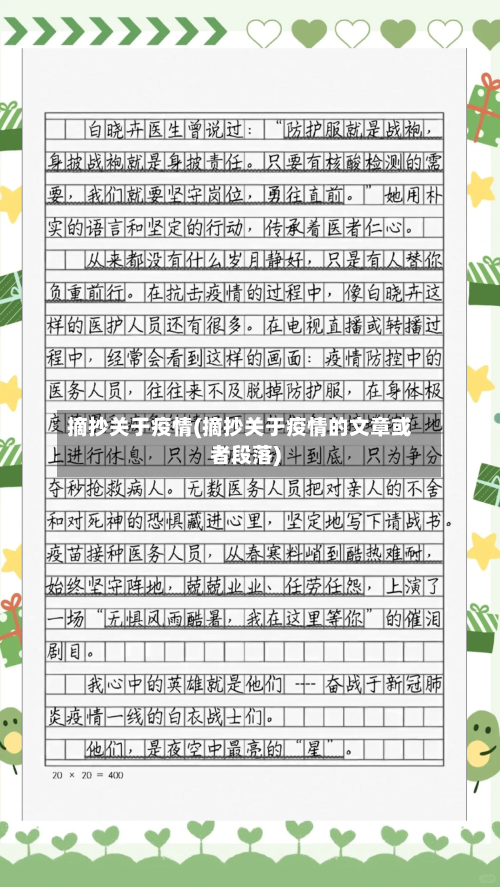 白晓卉医生曾说过：“防护服就是战袍，
身披战袍就是身披责任。只要有核酸检测的需
要，我们就要坚守岗位，勇往直前。”她用朴
实的语言和坚定的行动，传承着医者仁心。
从来都没有什么岁月静好，只是有人替你
负重前行。在抗击疫情的过程中，像白晓卉这
样的医护人员还有很多。在电视直播或转播过
程中，经常会看到这样的画面：疫情防控中的
医务人员，往往来不及脱掉防护服，在身体极
摘抄关于疫情(摘抄关于疫情的文章或
者段落)
度 在地
上进行休息，只为 斗到底，只为争分
夺秒抢救病人。无数医务人员把对亲人的不舍
和对死神的恐惧藏进心里，坚定地写下请战书。
疫苗接种医务人员，从春寒料峭到酷热难耐，
始终坚守阵地，兢兢业业、任劳任怨，上演了
一场“无惧风雨酷暑，我在这里等你”的催泪
剧目。
我心中的英雄就是他们 ---- 奋战于新冠肺
炎疫情一线的白衣战士们。
他们，是夜空中最亮的“星”。
20 × 20 = 400